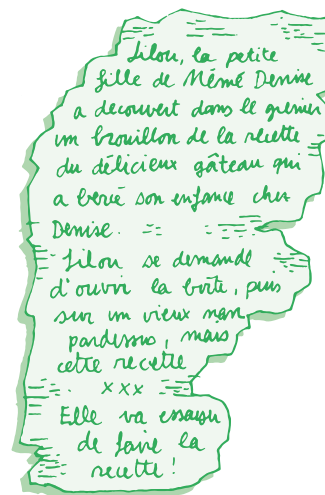 Lilou, la petite
fille de Mémé Denise
a decouvert dans le grenier
un brouillon de la recette
du délicieux gâteau qui
a bercé son enfance chez
Denise.
Lilou se demande
d'ouvrir la boîte, puis
sur un vieux
pardessus, mais
cette recette
xxx
Elle va essayer
de faire la
recette !